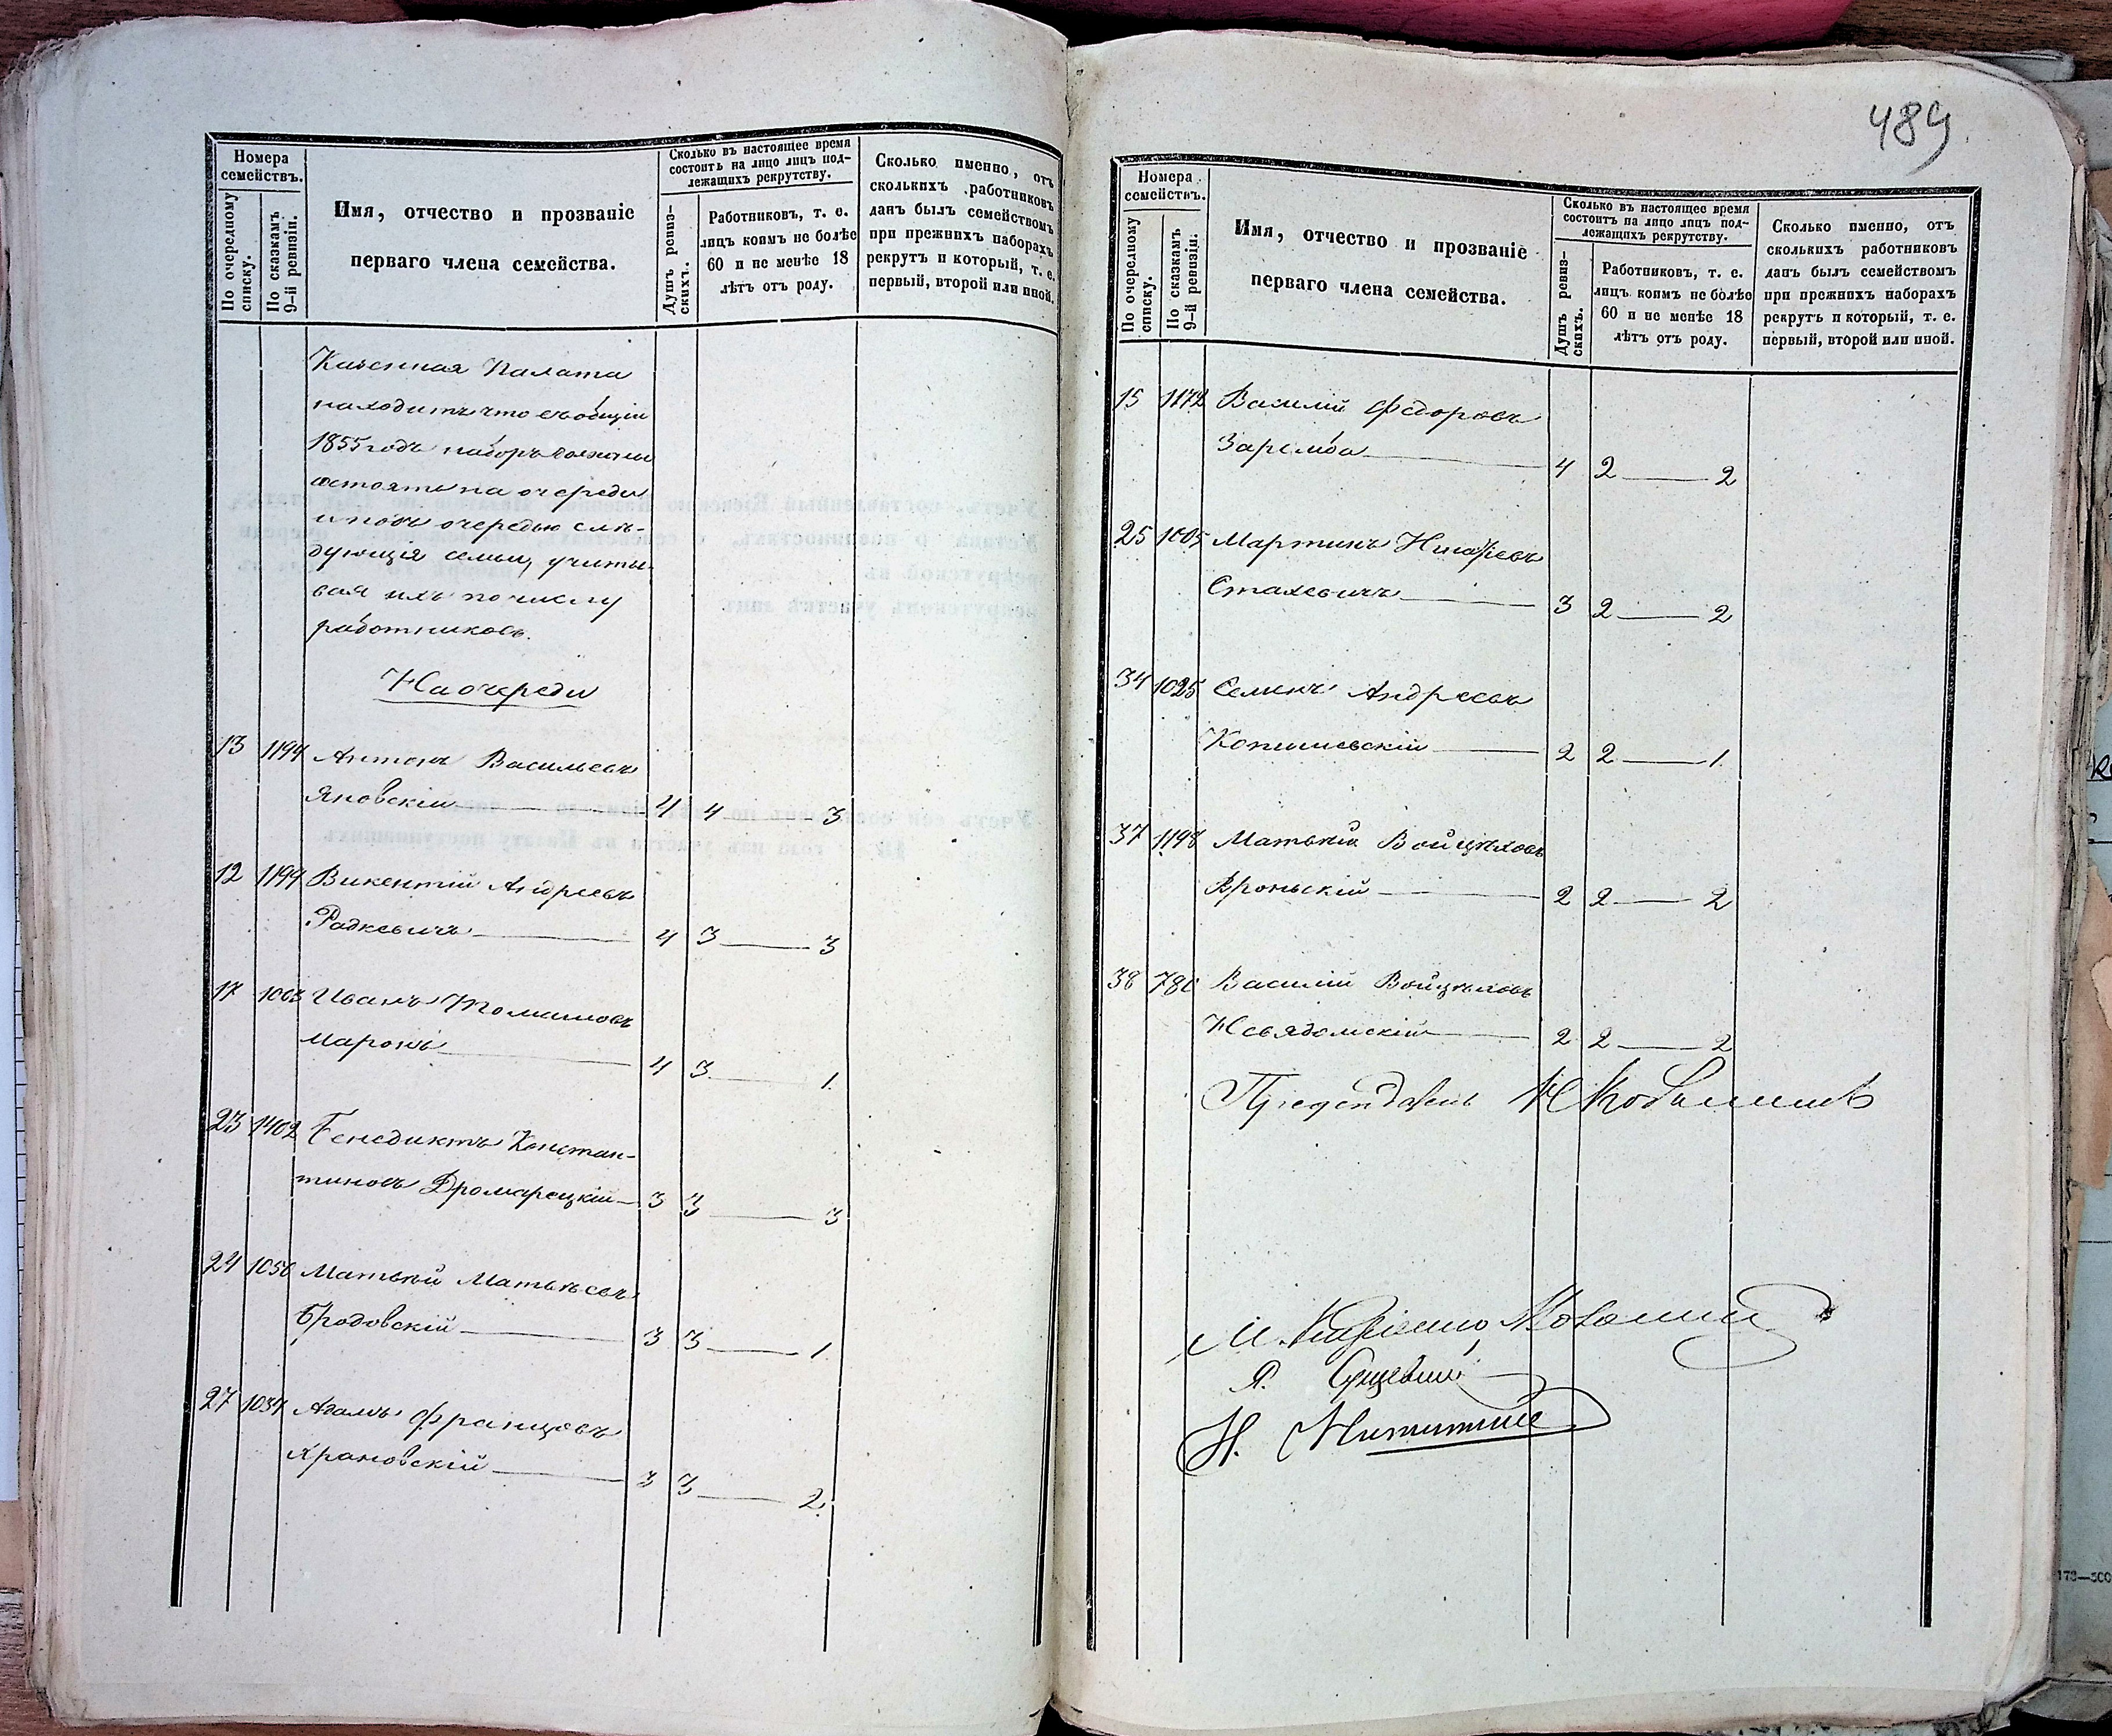 Номера семействъ.
По очередному списку.
По сказкамъ 9-й ревизіи.
Имя, отчество и прозваніе
перваго члена семейства.
Сколько въ настоящее время
состоитъ на лицо лицъ под-
лежащихъ рекрутству.
Душъ ревиз-
скихъ.
Работниковъ, т. е.
лицъ коимъ не болѣе
60 и не менѣе 18
лѣтъ отъ роду.
Сколько именно, отъ
сколькихъ работниковъ
данъ былъ семействомъ
при прежнихъ наборахъ
рекрутъ и который, т. е.
первый, второй или иной.
Казенная Палата
находитъ что въ общій
1855 годъ наборъ должны
состоять на очереди
и подъ очередью слѣ-
дующія семьи, учиты-
вая ихъ по числу
работниковъ.
На очереди
13 1194 Антонъ Васильевъ
Яновскій 4 4 3
12 1199 Викентій Андреевъ
Радкевичъ 4 3 3
17 1063 Иванъ Томашовъ
Маронъ 4 3 1
23 1402 Бенедиктъ Констан-
тиновъ Дромарецкій 3 3 3
24 1056 Матвѣй Матвѣевъ
Бродовскій 3 3 1
27 1034 Адамъ Францовъ
Храновскій 3 3 2
489
Номера
семействъ.
По очередному
списку.
По сказкамъ
9-й ревизіи.
Имя, отчество и прозваніе
перваго члена семейства.
Сколько въ настоящее время
состоитъ на лицо лицъ под-
лежащихъ рекрутству.
Душъ ревиз-
скихъ.
Работниковъ, т. е.
лицъ коимъ не болѣе
60 и не менѣе 18
лѣтъ отъ роду.
Сколько именно, отъ
сколькихъ работниковъ
данъ былъ семействомъ
при прежнихъ наборахъ
рекрутъ и который, т. е.
первый, второй или иной.
15 1172 Василій Федоровъ
Заремба 4 2 2
25 1005 Мартинъ
Стахевичъ 3 2 2
34 1025 Семенъ Андреевъ
2 2 1
37 1198 Матвѣй Войцѣховъ
Вроньскій 2 2 2
38 780 Василій Войцѣховъ
Невядомскій 2 2 2
Предсѣдатель
М.
Я.
Н.